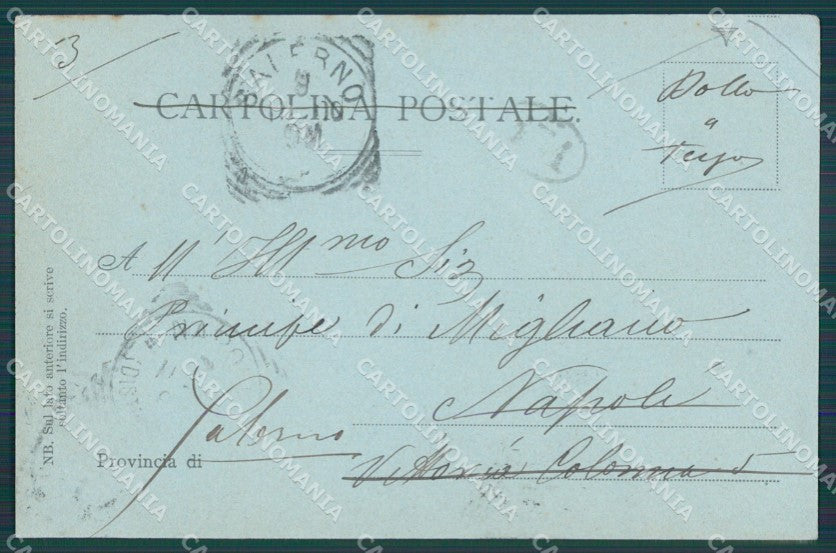 3
SALERNO
9
CARTOLINA POSTALE.
Bollo
a
Tergo
All' Ill.mo Sig
Principe di Migliano
Napoli
Provincia di Palermo
Vittoria Colonna 5
NB. Sul lato anteriore si scrive
soltanto l'indirizzo.
CARTOLINOMANIA